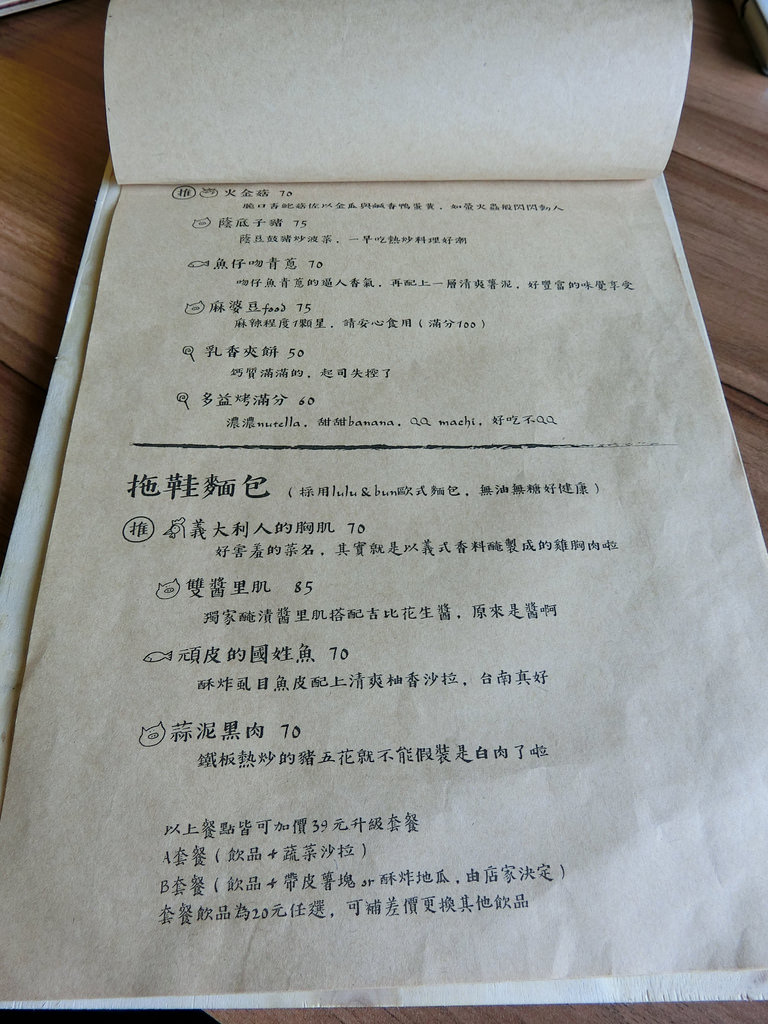 推 火金菇 70
脆口杏鮑菇佐以金瓜與鹹香鴨蛋黃，如螢火蟲般閃閃動人
蔭底子豬 75
蔭豆鼓豬炒波菜，一早吃熱炒料理好潮
魚仔吻青蔥 70
吻仔魚青蔥的逼人香氣，再配上一層清爽薯泥，好豐富的味覺享受
麻婆豆food 75
麻辣程度1顆星，請安心食用（滿分100）
乳香夾餅 50
鈣質滿滿的，起司失控了
多益烤滿分 60
濃濃nutella，甜甜banana，QQ machi，好吃不QQ
拖鞋麵包（採用lulu＆bun歐式麵包，無油無糖好健康）
推 義大利人的胸肌 70
好害羞的菜名，其實就是以義式香料醃製成的雞胸肉啦
雙醬里肌 85
獨家醃漬醬里肌搭配吉比花生醬，原來是醬啊
頑皮的國姓魚 70
酥炸虱目魚皮配上清爽柚香沙拉，台南真好
蒜泥黑肉 70
鐵板熱炒的豬五花就不能假裝是白肉了啦
以上餐點皆可加價39元升級套餐
A套餐（飲品＋蔬菜沙拉）
B套餐（飲品＋帶皮薯塊 or 酥炸地瓜，由店家決定）
套餐飲品為20元任選，可補差價更換其他飲品